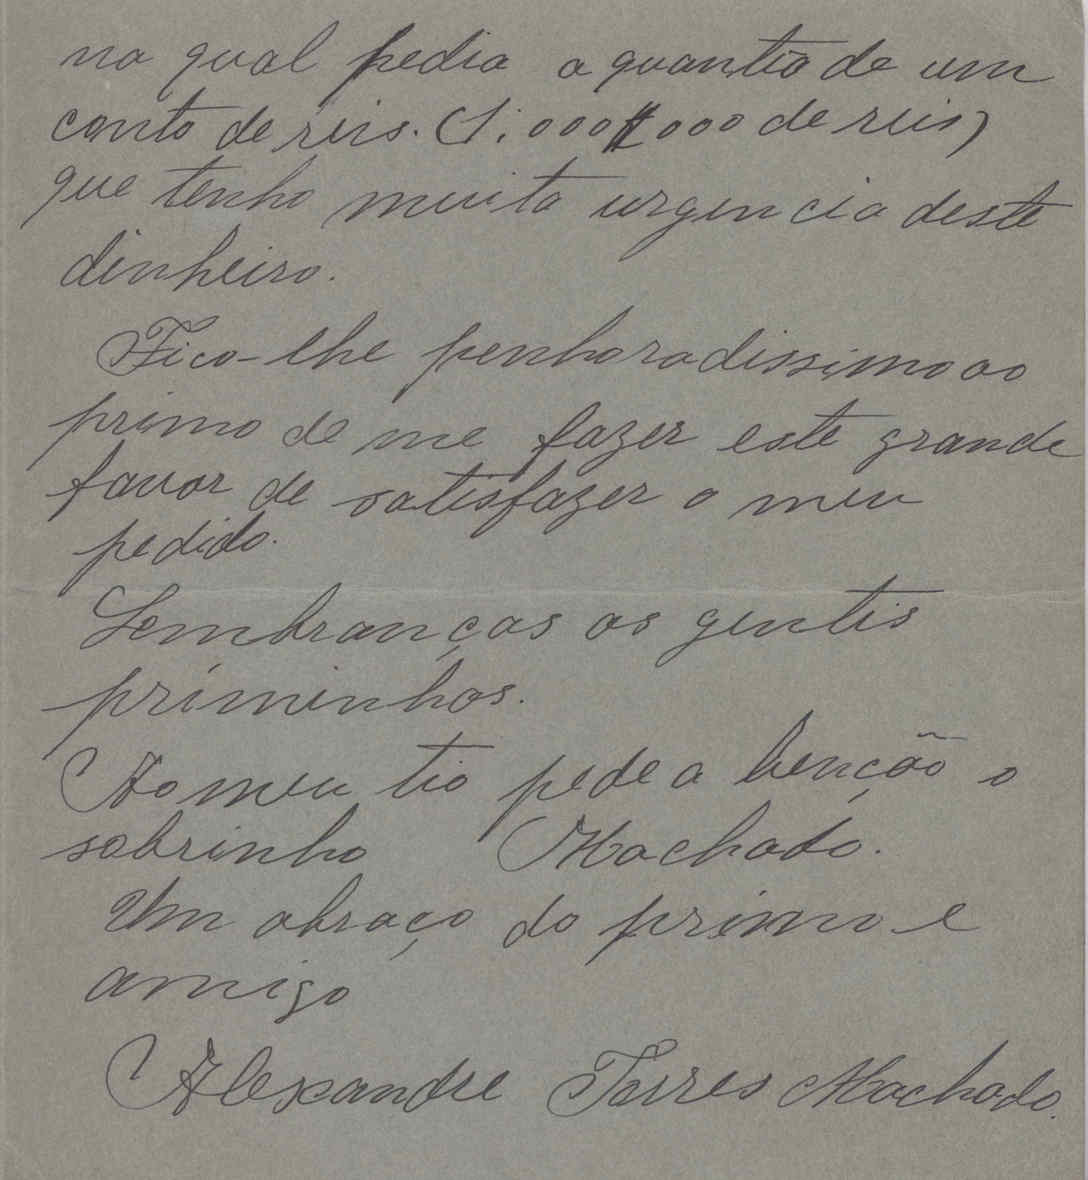 na qual pedia a quantia de um
conto de reis. (1:000$000 de reis)
que tenho muita urgencia deste
dinheiro.
Fico-lhe penhoradissimo ao
primo de me fazer este grande
favor de satisfazer o meu
pedido.
Lembranças as gentis
priminhas.
Ao meu tio pede a benção o
sobrinho Machado.
Um abraço do primo e
amigo
Alexandre Torres Machado.